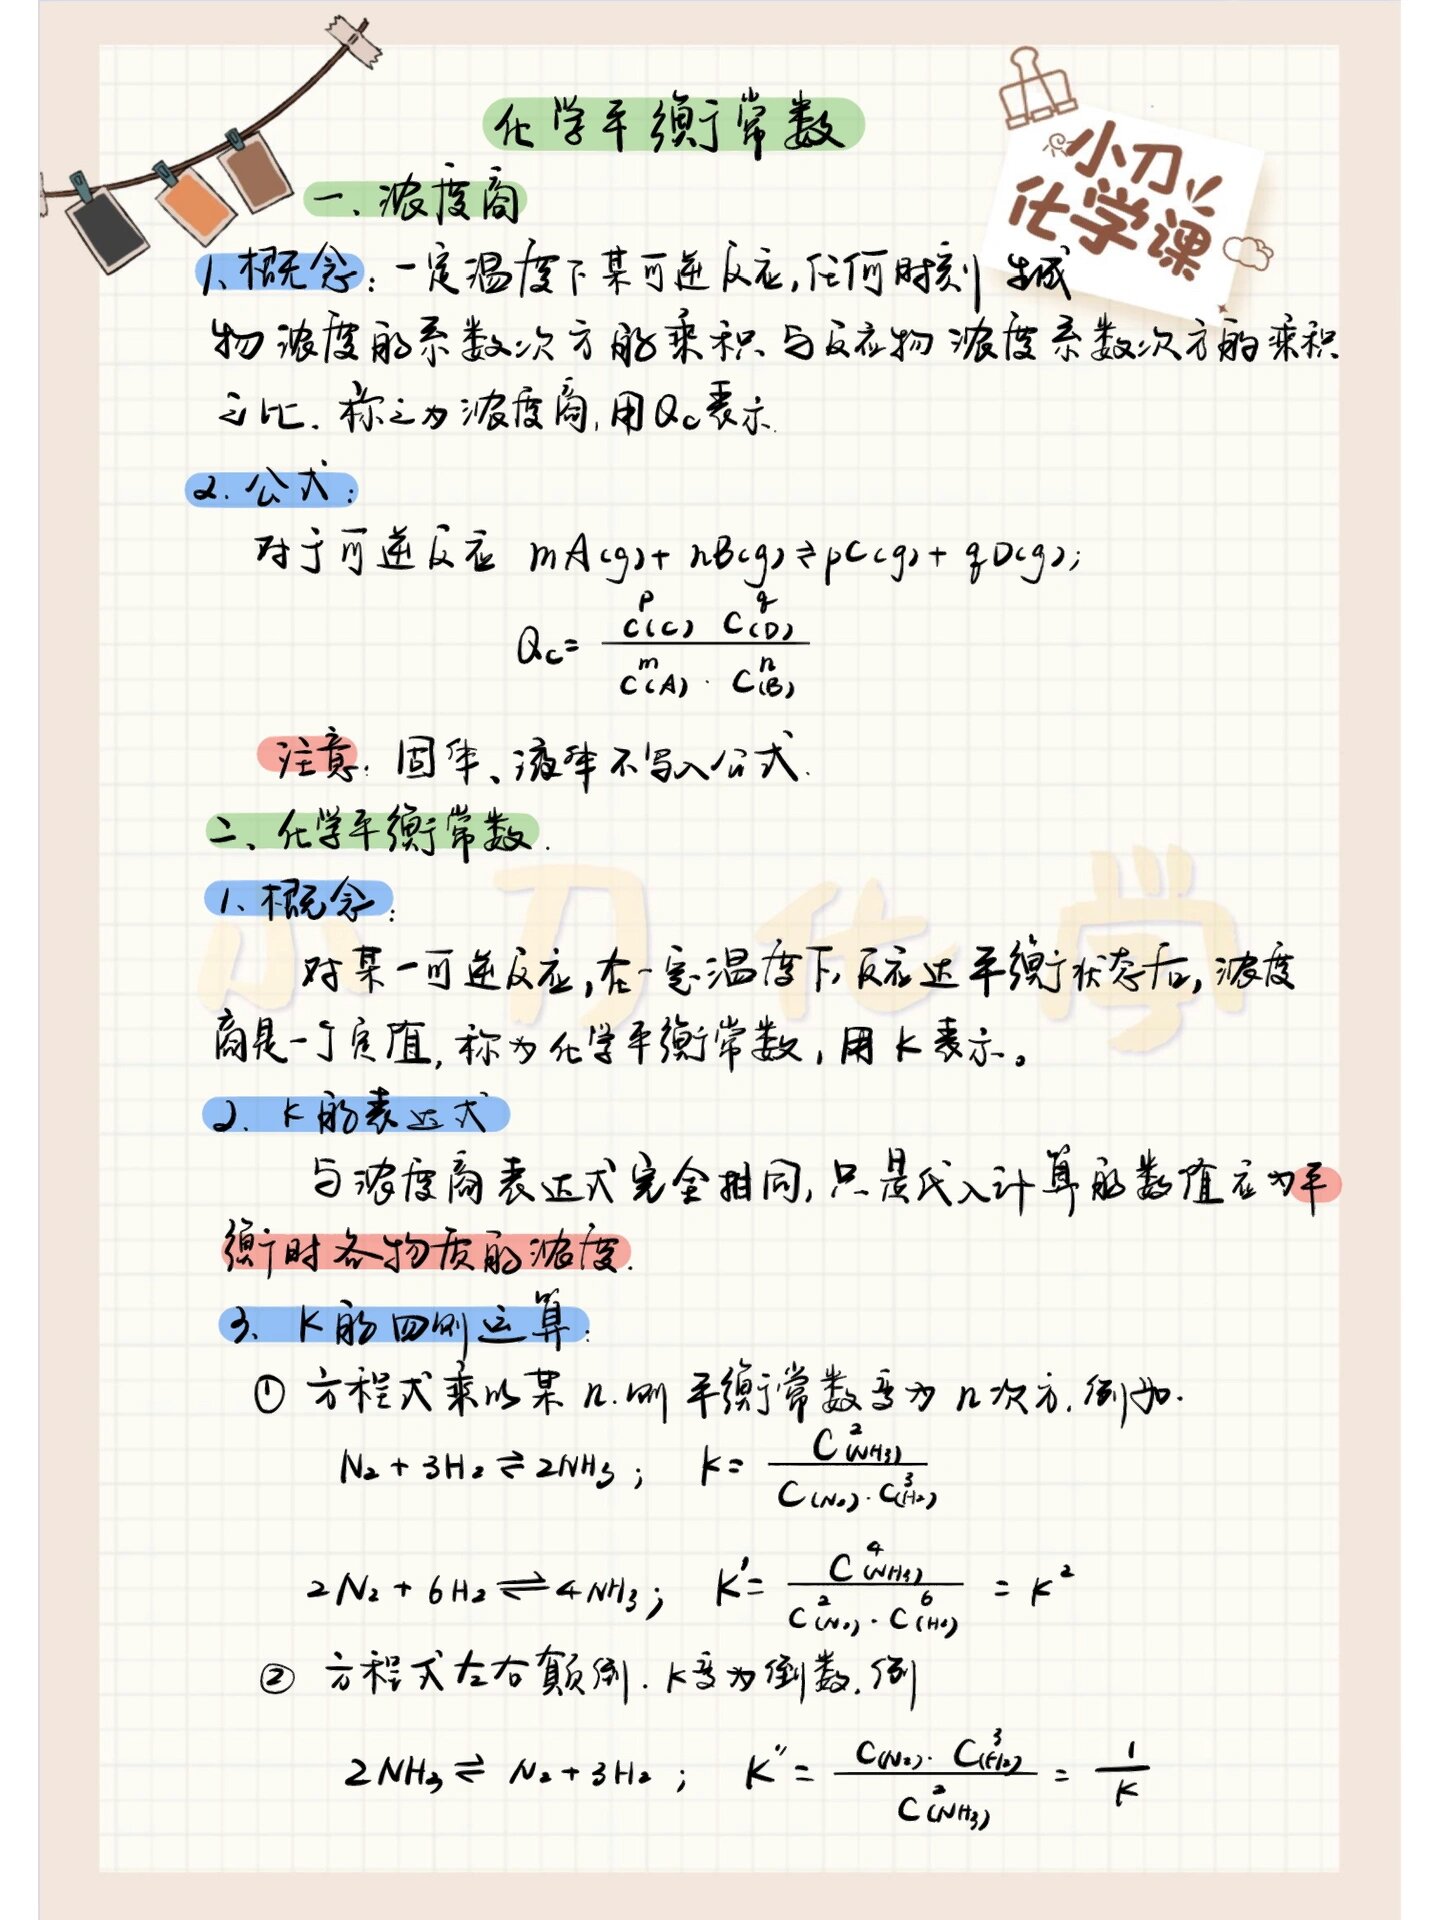 化学平衡常数
小刀
化学课
一、浓度商
1、概念：一定温度下某可逆反应,任何时刻 生成
物浓度的系数次方的乘积与反应物浓度系数次方的乘积
之比.称之为浓度商,用Qc表示.
2.公式：
对于可逆反应 mA(g)+nB(g)⇌pC(g)+qD(g);
Qc= C^p(C) C^q(D) / C^m(A)·C^n(B)
注意：固体、液体不写入公式.
二、化学平衡常数.
1、概念：
对某一可逆反应,在一定温度下,反应达平衡状态后,浓度
商是一个定值,称为化学平衡常数,用K表示。
2. K的表达式
与浓度商表达式完全相同,只是代入计算的数值应为平
衡时各物质的浓度.
3、K的四则运算：
① 方程式乘以某n.则平衡常数变为n次方.例如.
N₂+3H₂⇌2NH₃; K= C²(NH₃) / C(N₂)·C³(H₂)
2N₂+6H₂⇌4NH₃; K'= C⁴(NH₃) / C²(N₂)·C⁶(H₂) = K²
② 方程式左右颠倒.K变为倒数.例
2NH₃⇌N₂+3H₂; K''= C(N₂)·C³(H₂) / C²(NH₃) = 1/K
小刀化学